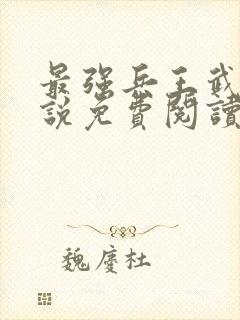 最强兵王武
说免費閱讀
魏慶杜